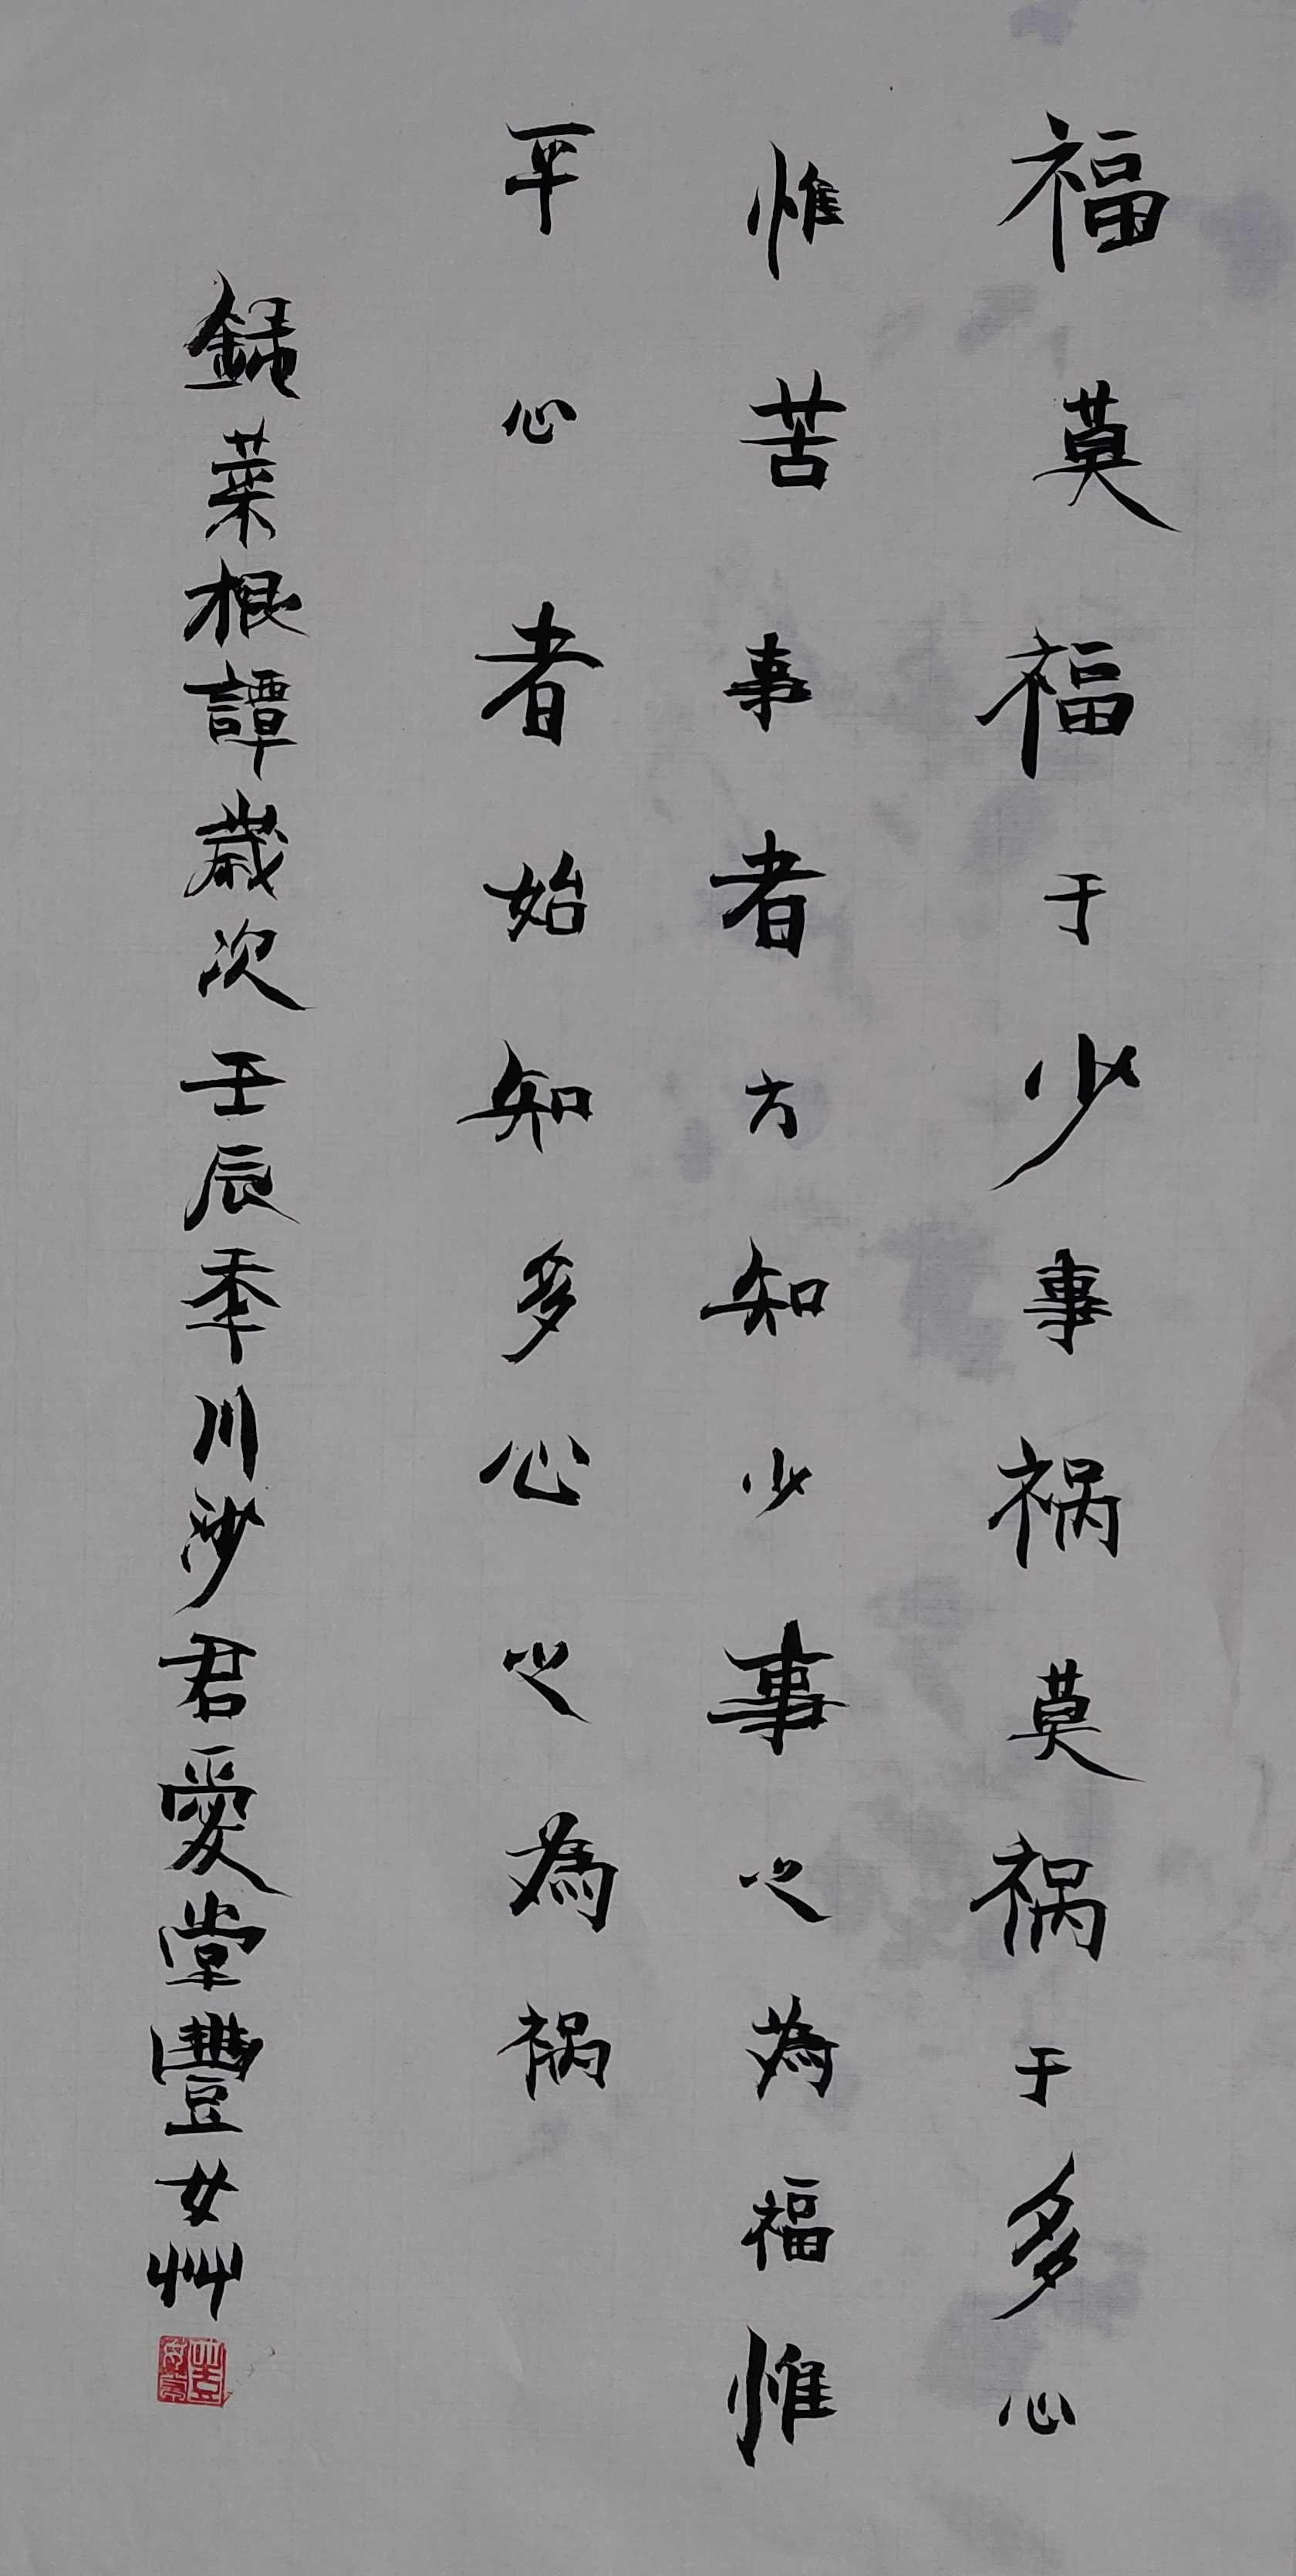 福莫福于少事祸莫祸于多心
惟苦事者方知少事之為福惟
平心者始知多心之為祸
録菜根譚歲次壬辰季川沙君愛堂豐女艸